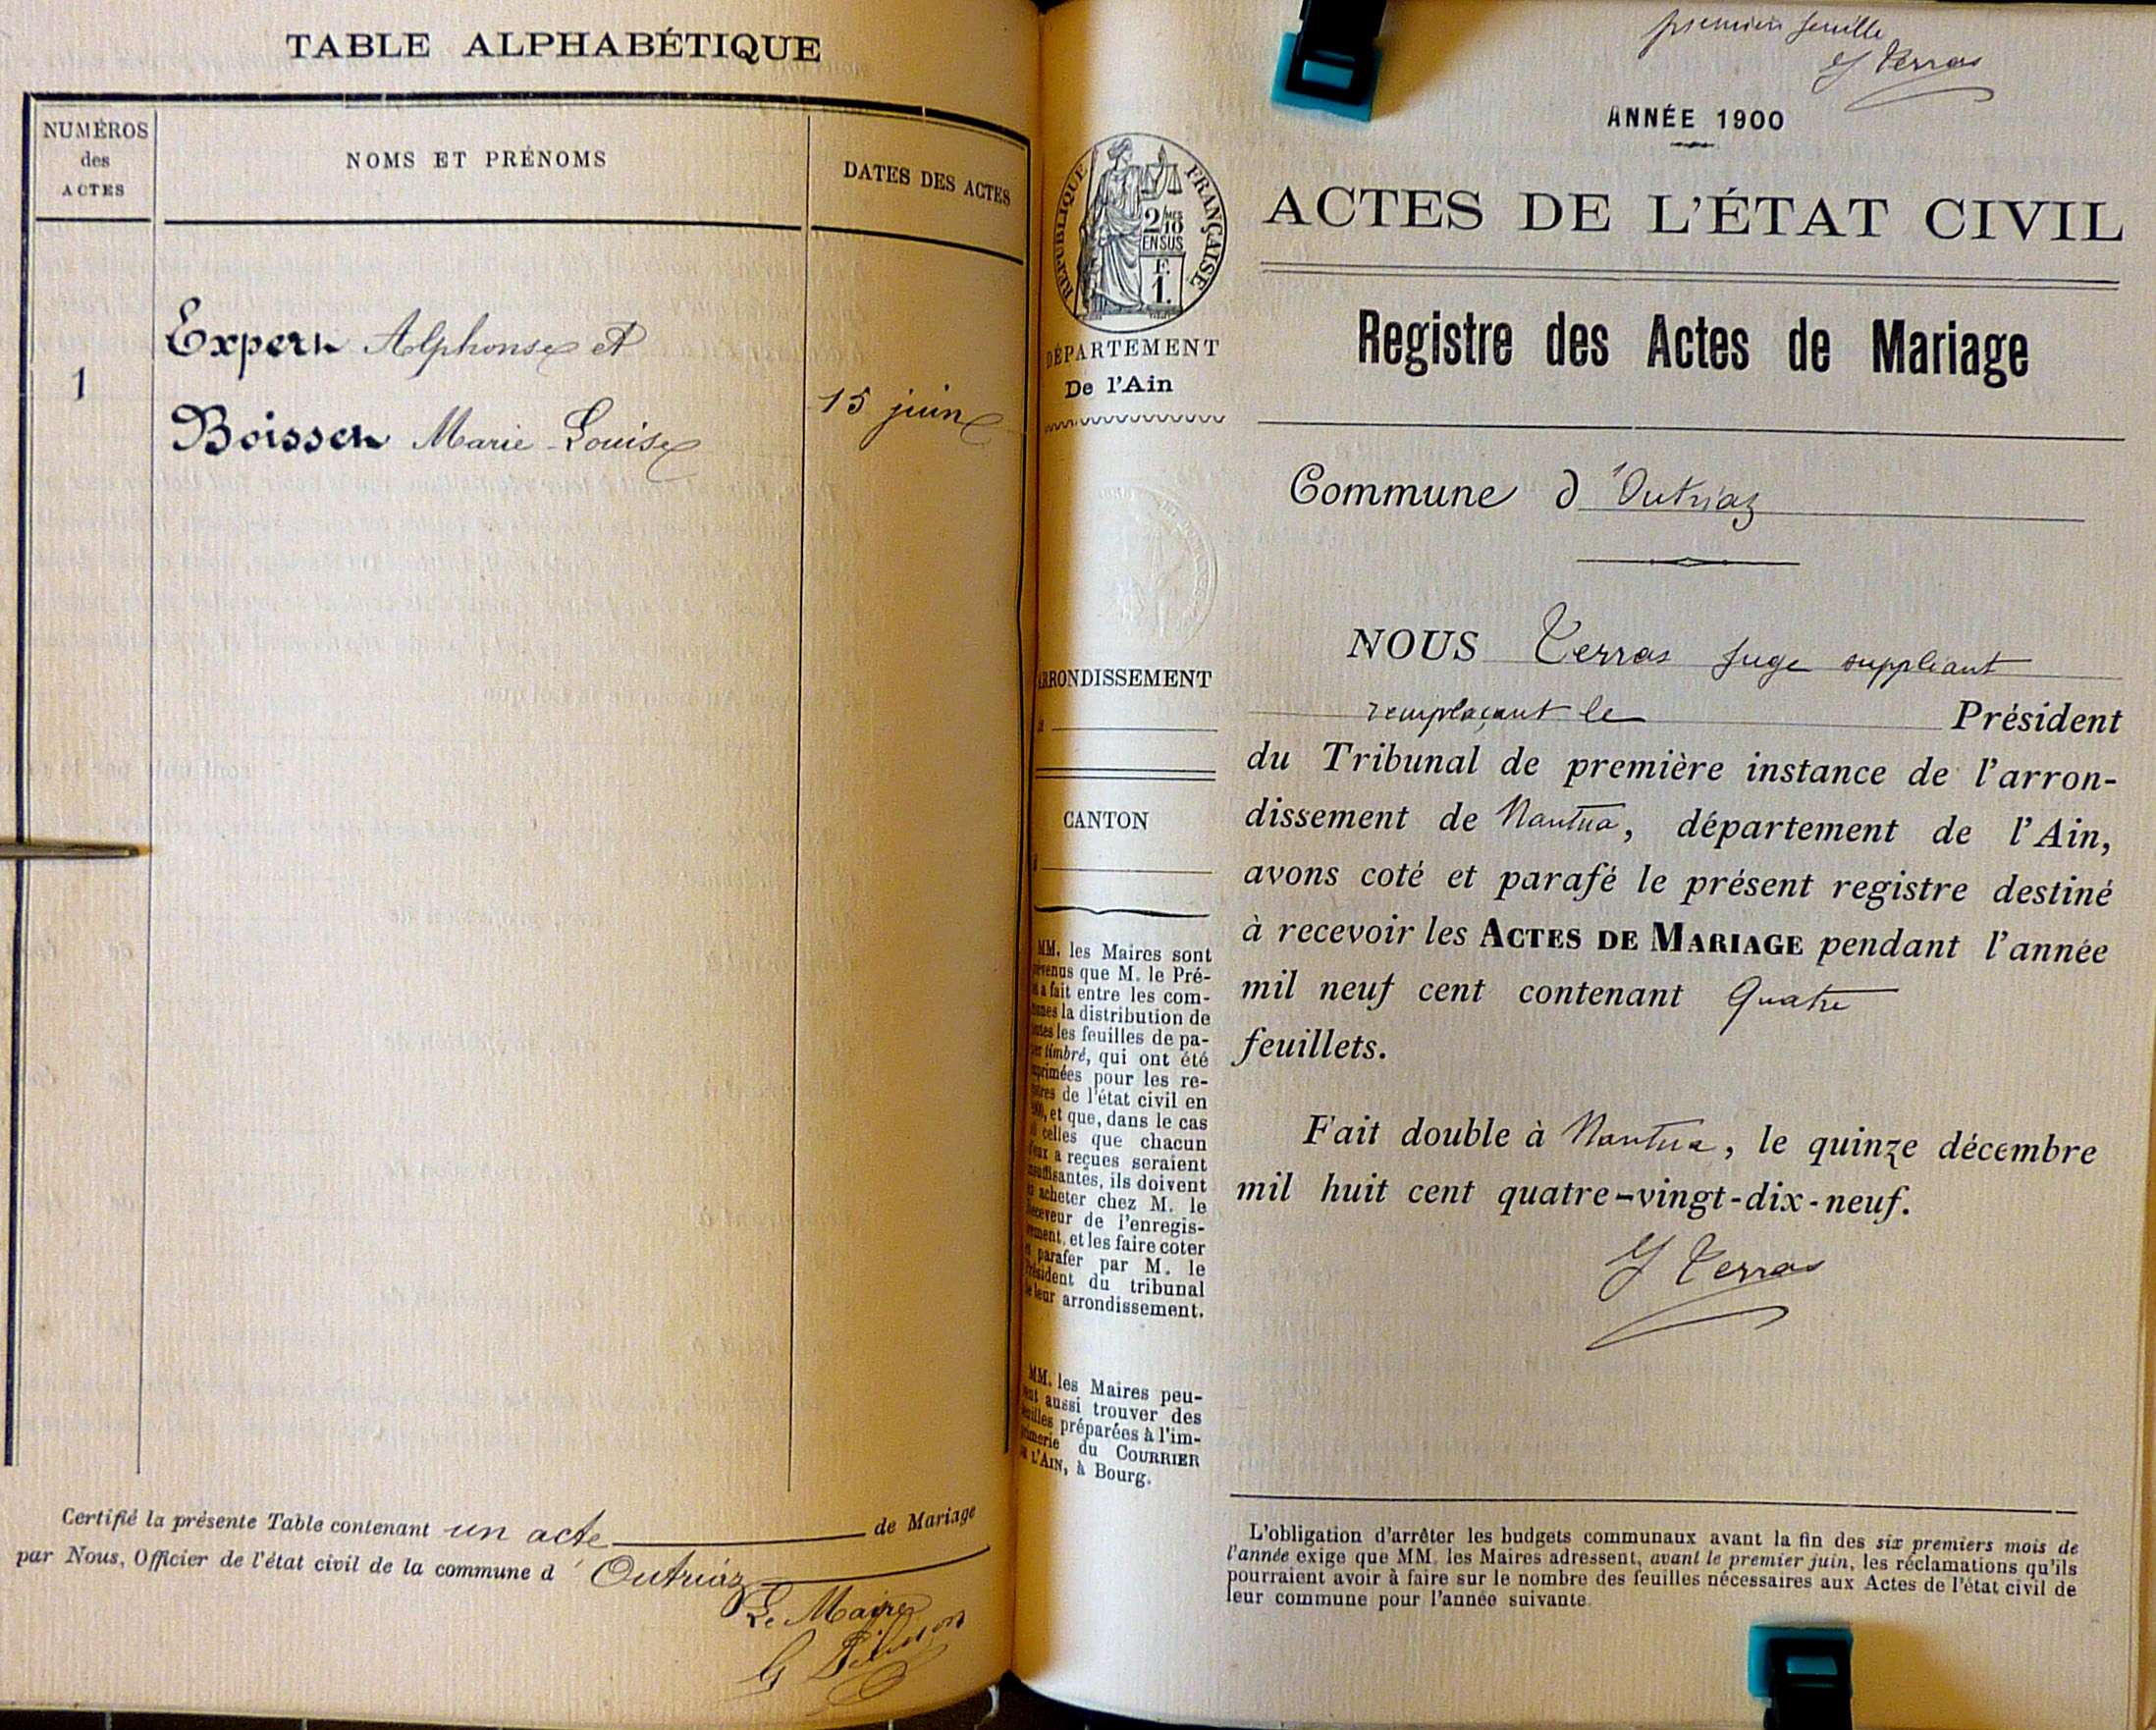 TABLE ALPHABÉTIQUE
NUMÉROS
des
ACTES
NOMS ET PRÉNOMS
DATES DES ACTES
1
Expern Alphonse et
Boissen Marie-Louise
15 juin
Certifié la présente Table contenant un acte de Mariage
par Nous, Officier de l'état civil de la commune d'Outriaz
Le Maire
premier feuille
Terras
ANNÉE 1900
RÉPUBLIQUE FRANÇAISE
2/10
EN SUS
F.
1.
DÉPARTEMENT
De l'Ain
ARRONDISSEMENT
CANTON
MM. les Maires sont
prévenus que M. le Pré-
fet a fait entre les com-
munes la distribution de
toutes les feuilles de pa-
pier timbré, qui ont été
imprimées pour les re-
gistres de l'état civil en
1900, et que, dans le cas
où celles que chacun
d'eux a reçues seraient
insuffisantes, ils doivent
en acheter chez M. le
Receveur de l'enregis-
trement, et les faire coter
et parafer par M. le
Président du tribunal
de leur arrondissement.
MM. les Maires peu-
vent aussi trouver des
feuilles préparées à l'im-
primerie du COURRIER
DE L'AIN, à Bourg.
ACTES DE L'ÉTAT CIVIL
Registre des Actes de Mariage
Commune d'Outriaz
NOUS Terras Juge suppléant
remplaçant le Président
du Tribunal de première instance de l'arron-
dissement de Nantua, département de l'Ain,
avons coté et parafé le présent registre destiné
à recevoir les ACTES DE MARIAGE pendant l'année
mil neuf cent contenant Quatre
feuillets.
Fait double à Nantua, le quinze décembre
mil huit cent quatre-vingt-dix-neuf.
Terras
L'obligation d'arrêter les budgets communaux avant la fin des six premiers mois de
l'année exige que MM. les Maires adressent, avant le premier juin, les réclamations qu'ils
pourraient avoir à faire sur le nombre des feuilles nécessaires aux Actes de l'état civil de
leur commune pour l'année suivante.